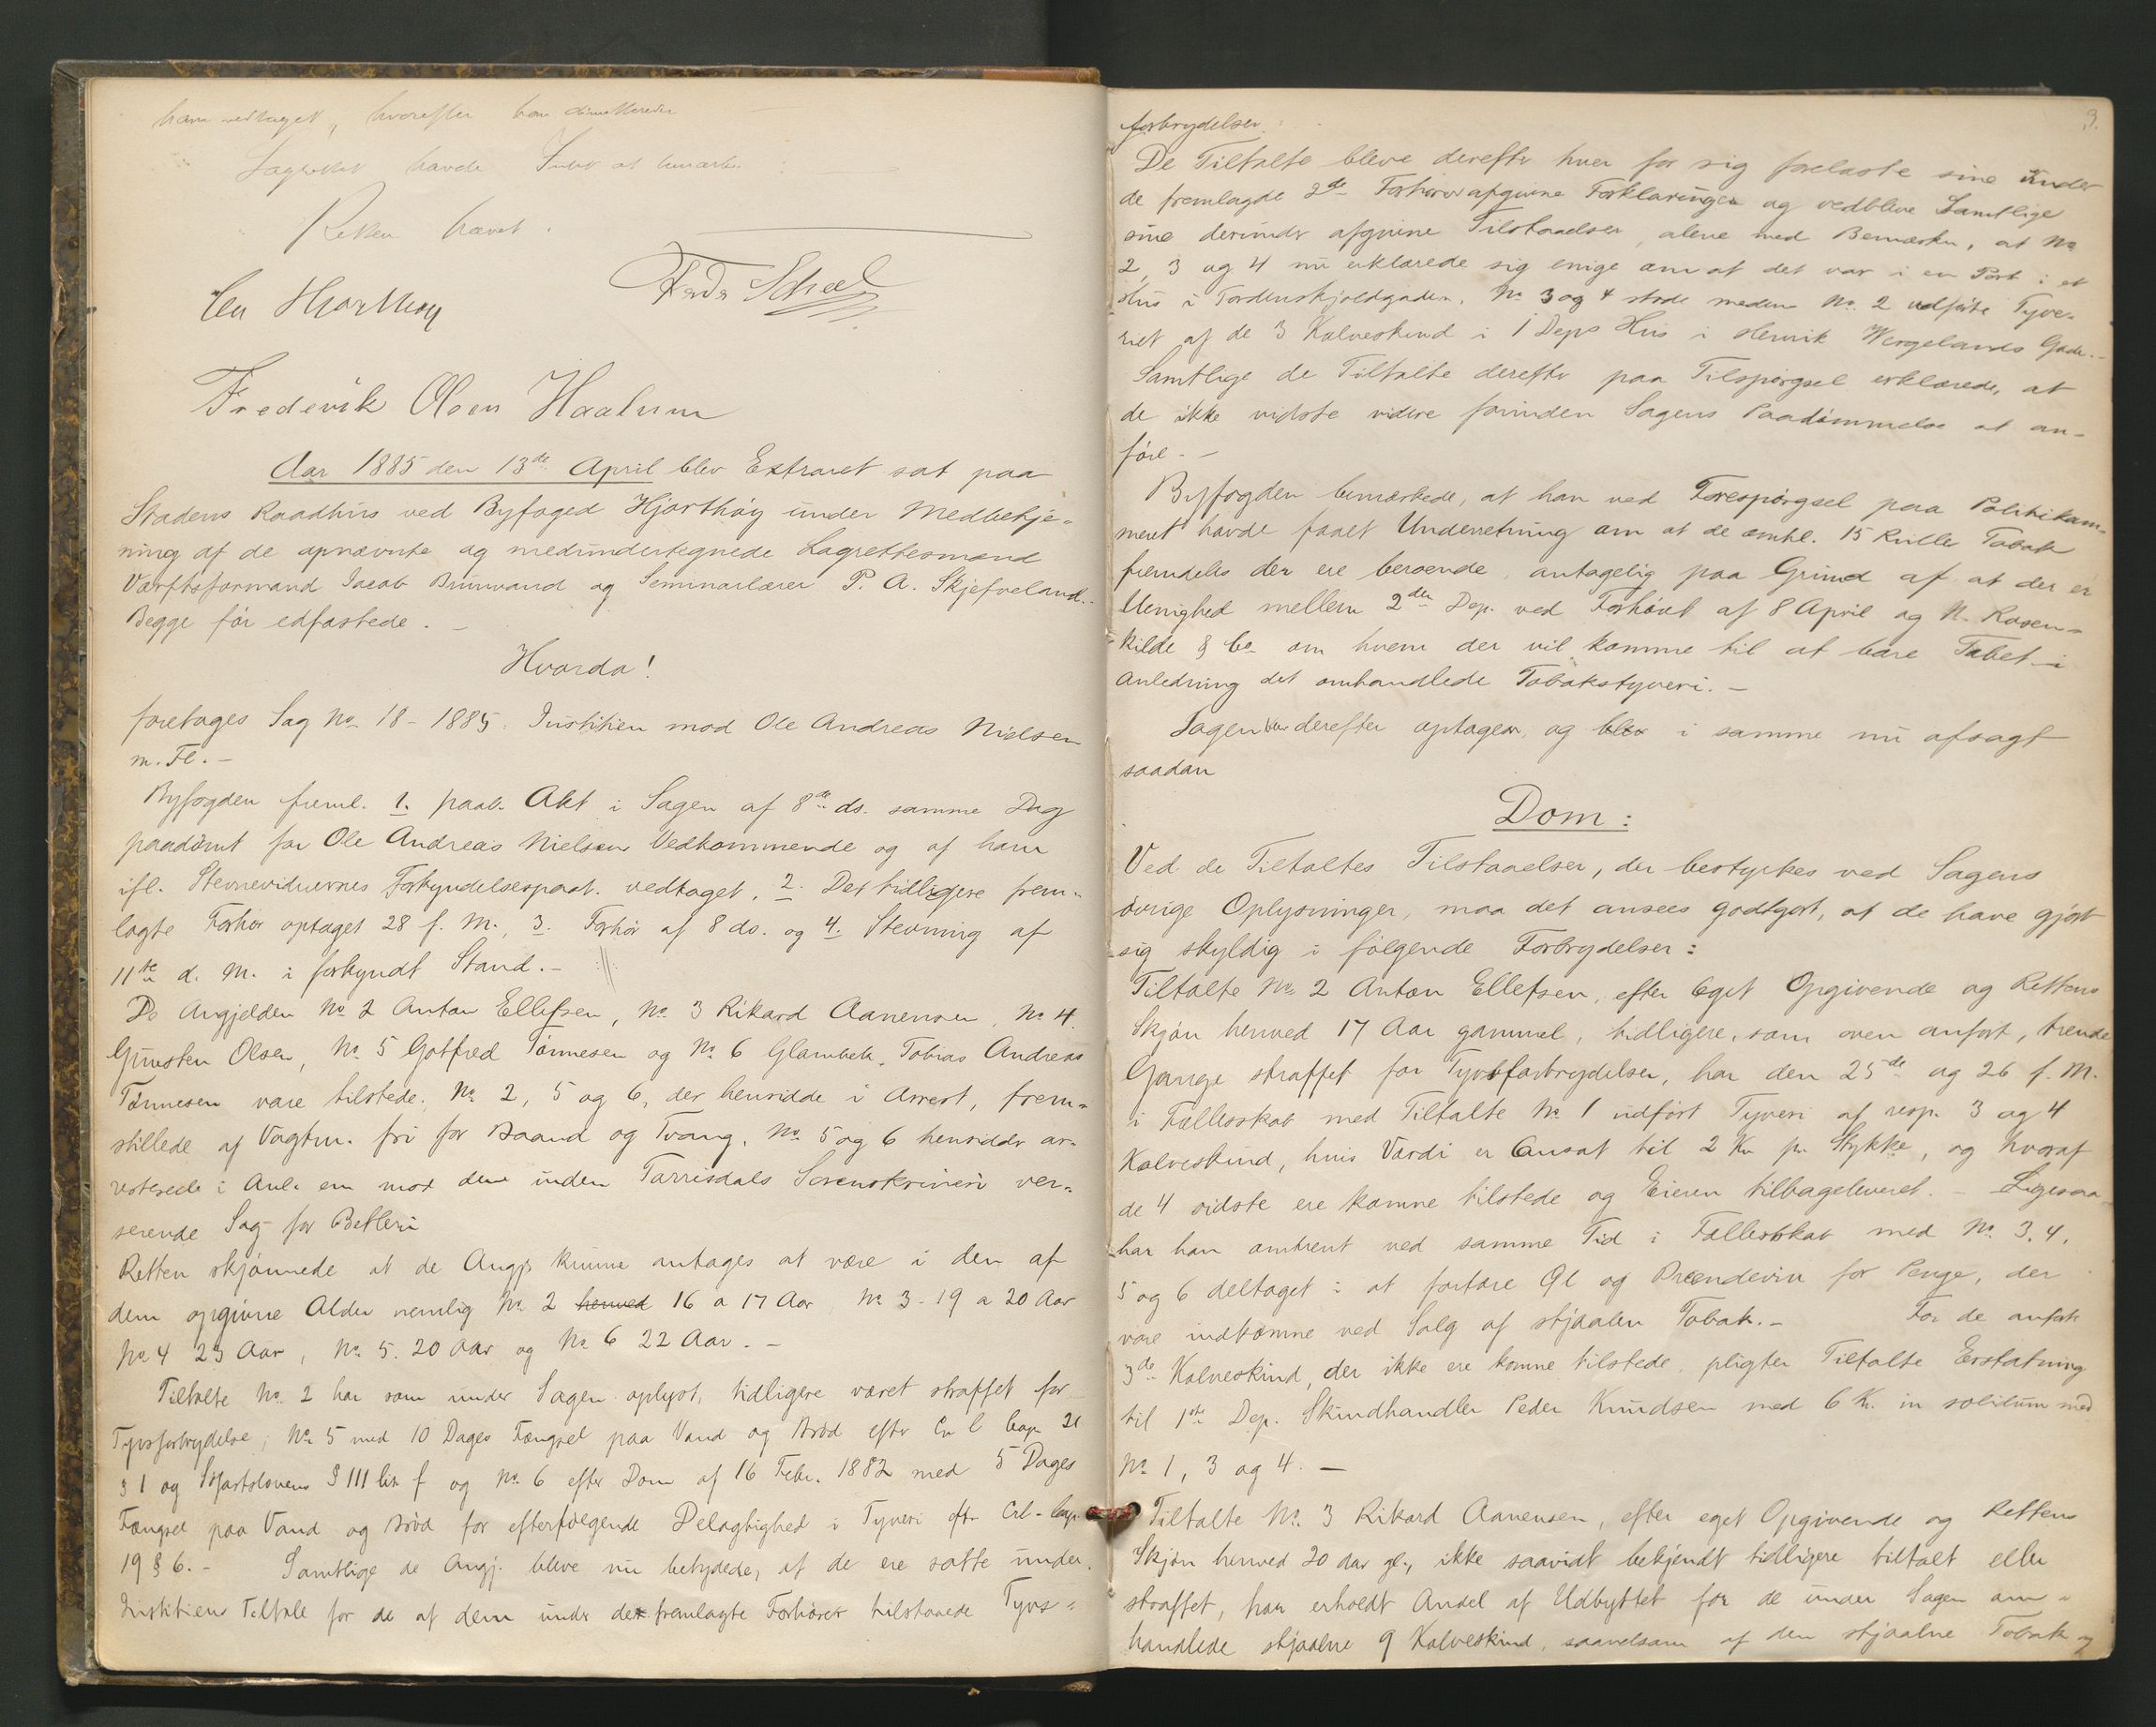 ham vedtaget, hvorefter han dimitteredes
Lagrettet havde Intet at bemærke
Retten hævet.
Chr Hjorthøy
Fredr Scheel
Frederik Olsen Haalum
Aar 1885 den 13de April blev Extraret sat paa
Stadens Raadhus ved Byfoged Hjorthøy under Medbetje-
ning af de opnævnte og medundertegnede Lagrettesmænd
Værftsformand Jacob Brunvand og Seminarlærer P. A. Skjefveland.
Begge før edfæstede. –
Hvorda!
foretages Sag No 18 – 1885. Justitien mod Ole Andreas Nielsen
m. Fl. –
Byfogden freml. 1. paab. Akt i Sagen af 8de ds. samme Dag
paadømt for Ole Andreas Nielsens Vedkommende og af ham
ifl. Stevnevidnernes Forkyndelsespaat. vedtaget, 2. Det tidligere frem-
lagte Forhør optaget 28 f. M., 3. Forhør af 8 ds. og 4. Stevning af
11te d. M. i forkyndt Stand. –
De Angjeldne No 2 Anton Ellefsen, No 3 Rikard Aanensen, No 4
Gunsten Olsen, No 5 Gotfred Tønnesen og No 6 Tobias Andreas
Tønnesen vare tilstede. No 2, 5 og 6, der hensidde i Arrest, frem-
stillede af Vagtm. fri for Baand og Tvang. No 5 og 6 hensidder ar-
resterede i Anl. en mod dem inden Torrisdals Sorenskriveri ver-
serende Sag for Betleri
Retten skjønnede at de Angj. kunne antages at være i den af
dem opgivne Alder nemlig No 2 henved 16 a 17 Aar, No 3 - 19 a 20 Aar
No 4 23 Aar, No 5. 20 Aar og No 6 22 Aar. –
Tiltalte No 2 har som under Sagen oplyst, tidligere været straffet for
Tyvsforbrydelse, No 5 med 10 Dages Fængsel paa Vand og Brød efter Cr l Cap 21
§ 1 og § 111 lit f og No 6 efter Dom af 16 Febr. 1882 med 5 Dages
Fængsel paa Vand og Brød for efterfølgende Delagtighed i Tyveri eftr Crl - Cap
19 § 6. – Samtlige de Angj. bleve nu betydede, at de ere satte under
Justitiens Tiltale for de af dem under det fremlagte Forhører tilstaaede Tyvs-
3.
forbrydelser.
De Tiltalte bleve derefter hver for sig forelæste sine under
de fremlagde 2de Forhører afgivne Forklaringer og vedbleve Samtlige
sine derunder afgivne Tilstaaelser, alene med Bemærkn. at No
2, 3 og 4 nu erklærede sig enige om at det var i en Port i et
Hus i Tordenskjoldgaden, No 3 og 4 stode medens No 2 udførte Tyve-
riet af de 3 Kalveskind i 1 Deps Hus i Henrik Wergelands Gade. –
Samtlige de Tiltalte derefter paa Tilspørgsel erklærede, at
de ikke vidste videre forinden Sagens Paadømmelse at an-
føre. –
Byfogden bemærkede, at han ved Forespørgsel paa Politikam-
meret havde faaet Underretning om at de omhl. 15 Ruller Tobak
fremdeles der ere beroende, antagelig paa Grund af at der er
Uenighed mellem 2den Dep. ved Forhøret af 8 April og N. Rosen-
kilde & Co om hvem der vil komme til at bære Tabet i
Anledning det omhandlede Tobakstyveri. –
Sagen blev derefter optagen, og blev i samme nu afsagt
saadan
Dom:
Ved de Tiltaltes Tilstaaelser, der bestyrkes ved Sagens
øvrige Oplysninger, maa det ansees godtgjort, at de have gjort
sig skyldig i følgende Forbrydelser:
Tiltalte No 2 Anton Ellefsen, efter Eget Opgivende og Rettens
Skjøn henved 17 Aar gammel, tidligere, som oven anført, trende
Gange straffet for Tyvsforbrydelser, har den 25de og 26 f. M.
i Fællesskab med Tiltalte No 1 udført Tyveri af resp. 3 og 4
Kalveskind, hvis Værdi er Ansat til 2 Kr pr. Stykke, og hvoraf
de 4 sidste ere komne tilstede og Eieren tilbageleveret. – Ligesaa
har han omtrent ved samme Tid i Fællesskab med No 3, 4,
5 og 6 deltaget i at fortære Øl og Brændeviin for Penge, der
vare indkomne ved Salg af stjaalen Tobak. – For de anførte
3de Kalveskind, der ikke ere komne tilstede, pligter Tiltalte Erstatning
til 1ste Dep. Skindhandler Peder Knudsen med 6 Kr. in solidum med
No 1, 3 og 4. –
Tiltalte No 3 Rikard Aanensen, efter eget Opgivende og Rettens
Skjøn henved 20 Aar gl., ikke saavidt bekjendt tidligere tiltalt eller
straffet, har erholdt Andel af Udbyttet for de under Sagen om-
handlede stjaalne 9 Kalveskind, saavelsom af den stjaalne Tobak og